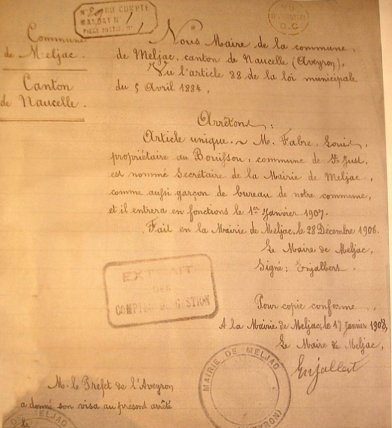 Commune
de Meljac
Canton
de Naucelle
Nous Maire de la commune
de Meljac, canton de Naucelle (Aveyron),
Vu l'article 88 de la loi municipale
du 5 Avril 1884,
Arrêtons:
Article unique. M. Fabre, Louis
propriétaire au Bouisson, commune de St Just,
est nommé Secrétaire de la Mairie de Meljac,
comme aussi garçon de bureau de notre commune,
et il entrera en fonctions le 1er Janvier 1907.
Fait en la Mairie de Meljac, le 28 Décembre 1906.
Le Maire de Meljac,
Signé: Enjalbert.
EXTRAIT
DES
COMPTES DE GESTION
Pour copie conforme
A la Mairie de Meljac, le 17 Janvier 1908,
Le Maire de Meljac,
Enjalbert
MAIRIE DE MELJAC
M. le Préfet de l'Aveyron
a donné son visa au présent arrêté
le